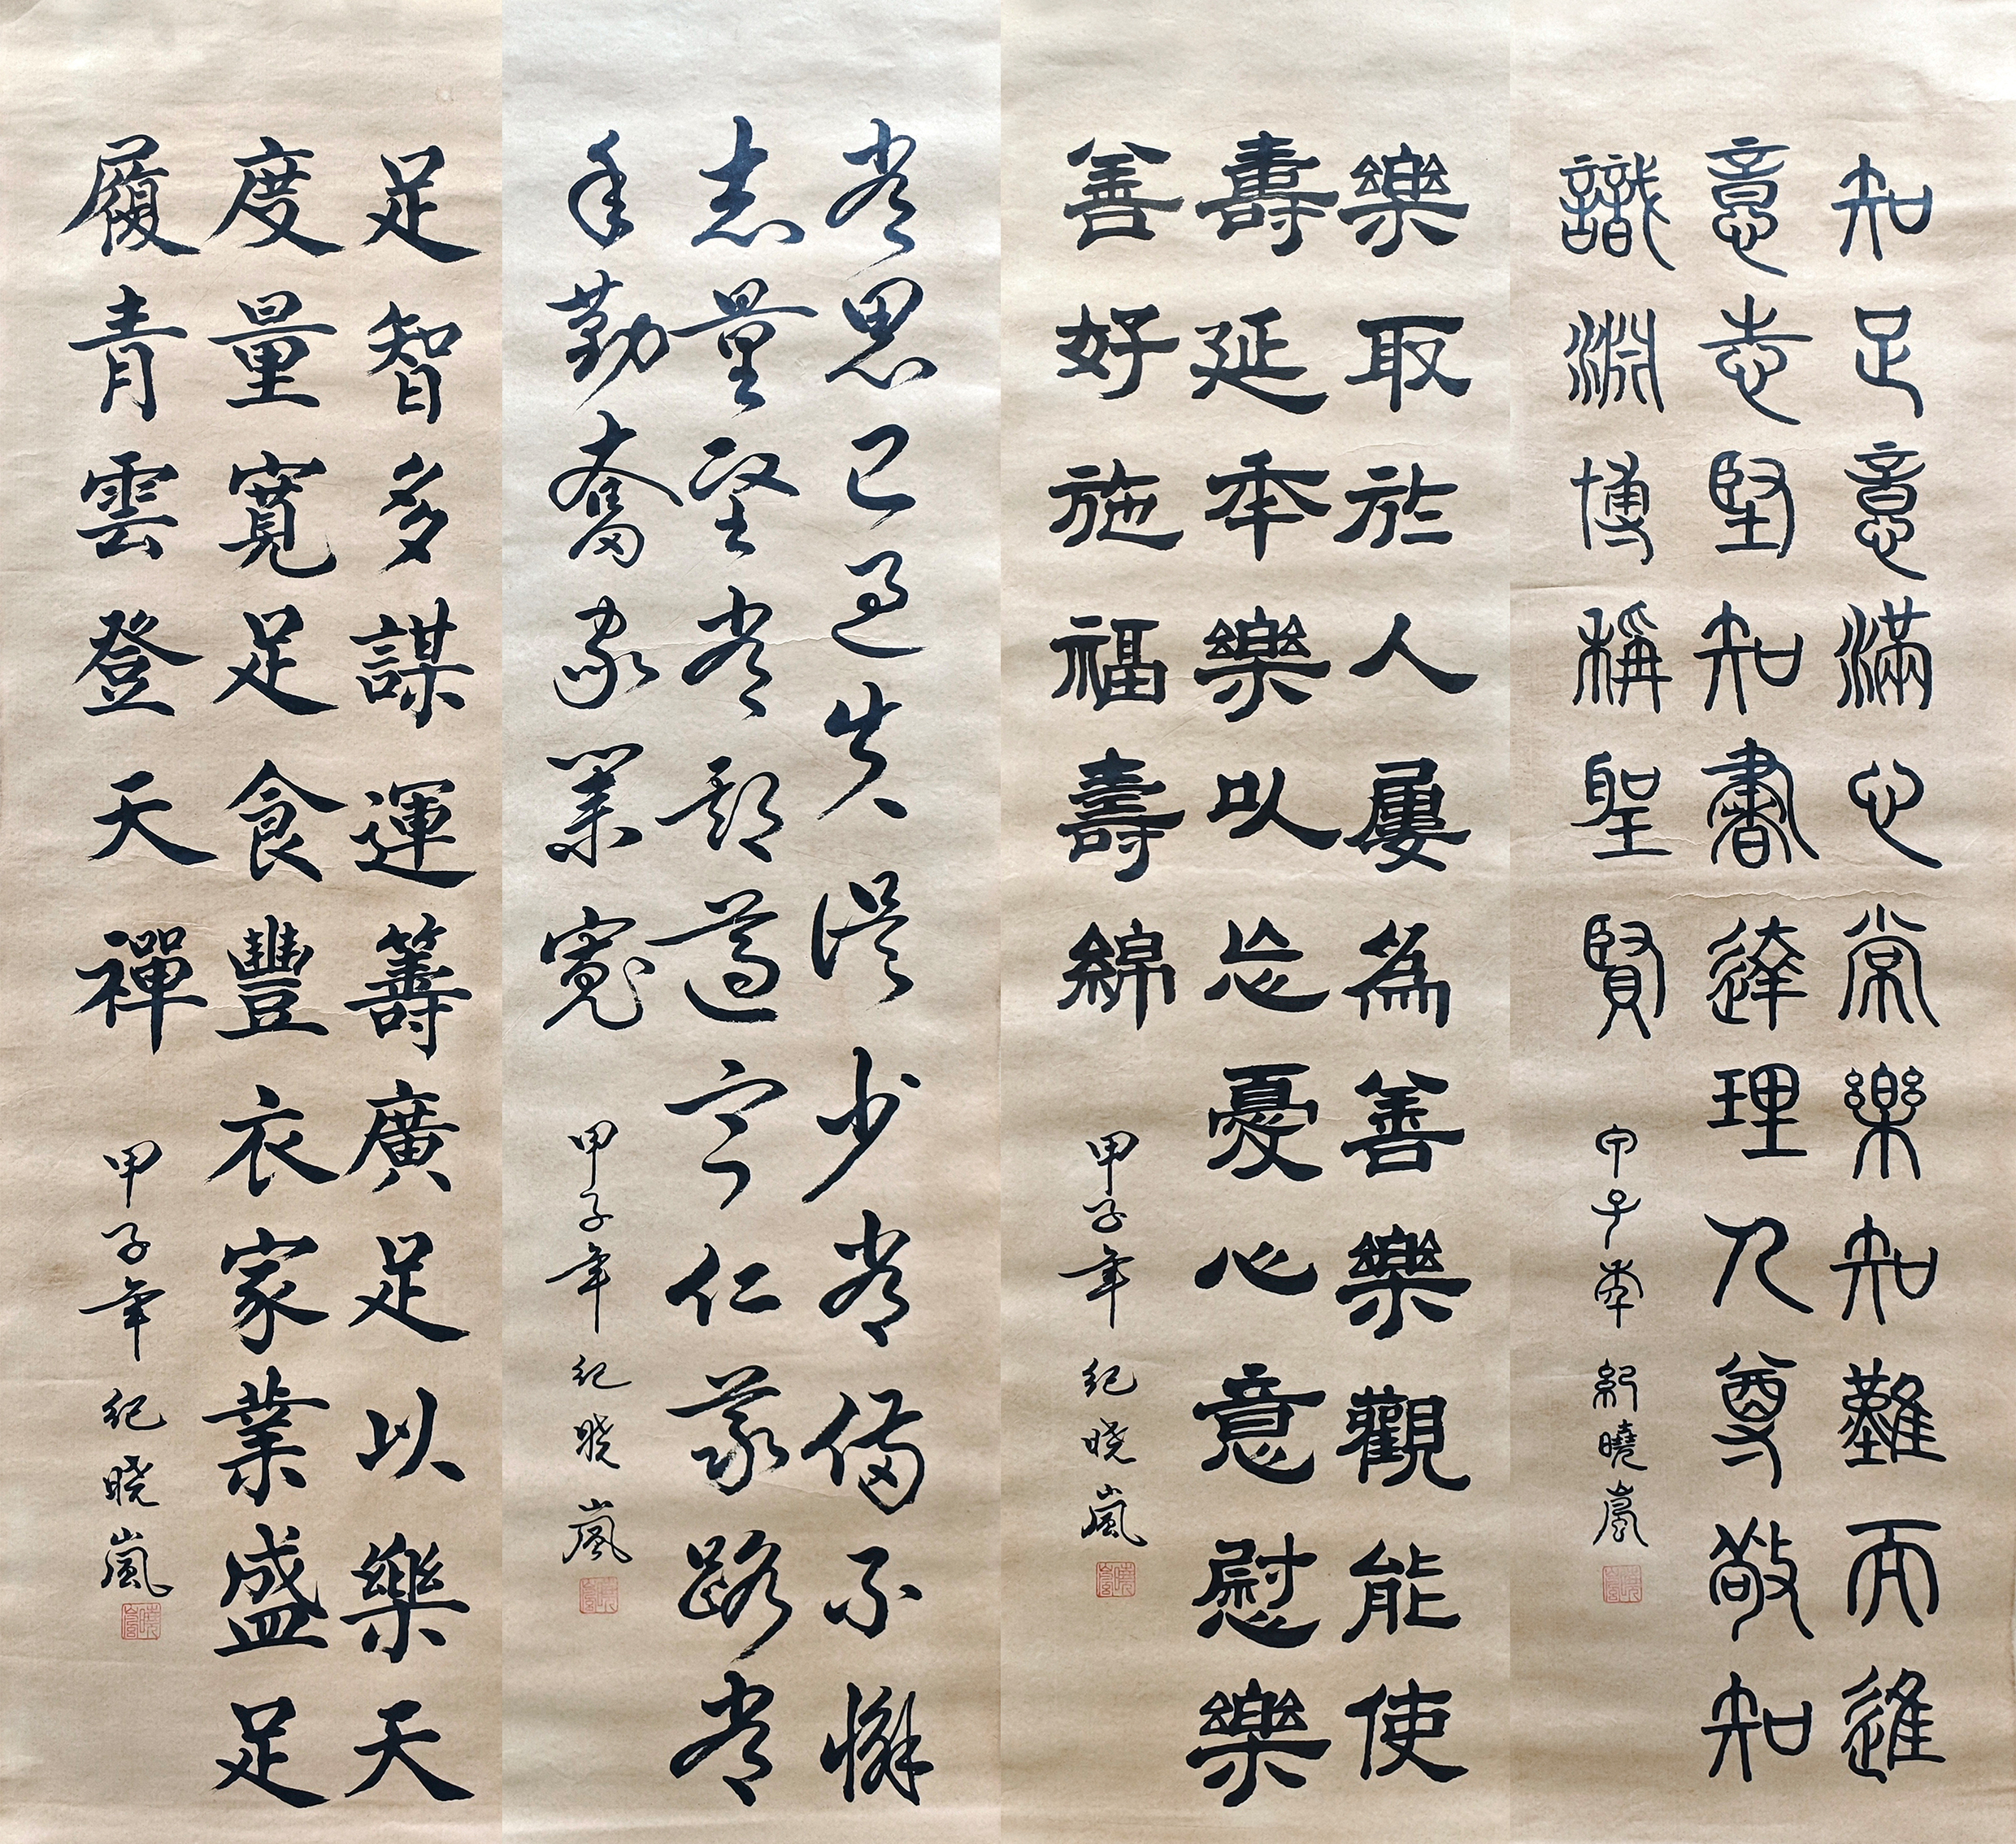 知足意滿心常樂知難而進
意志堅知書達理人尊敬知
識淵博稱聖賢
甲子年 紀曉嵐
樂取於人屢為善樂觀能使
壽延年樂以忘憂心意慰樂
善好施福壽綿
甲子年 紀晓嵐
常思己過失誤少常備不懈
志量堅常遵守仁義路常
年勤奮家業寬
甲子年 紀晓嵐
足智多謀運籌廣足以樂天
度量寬足食豐衣家業盛足
履青雲登天禪
甲子年 紀晓嵐